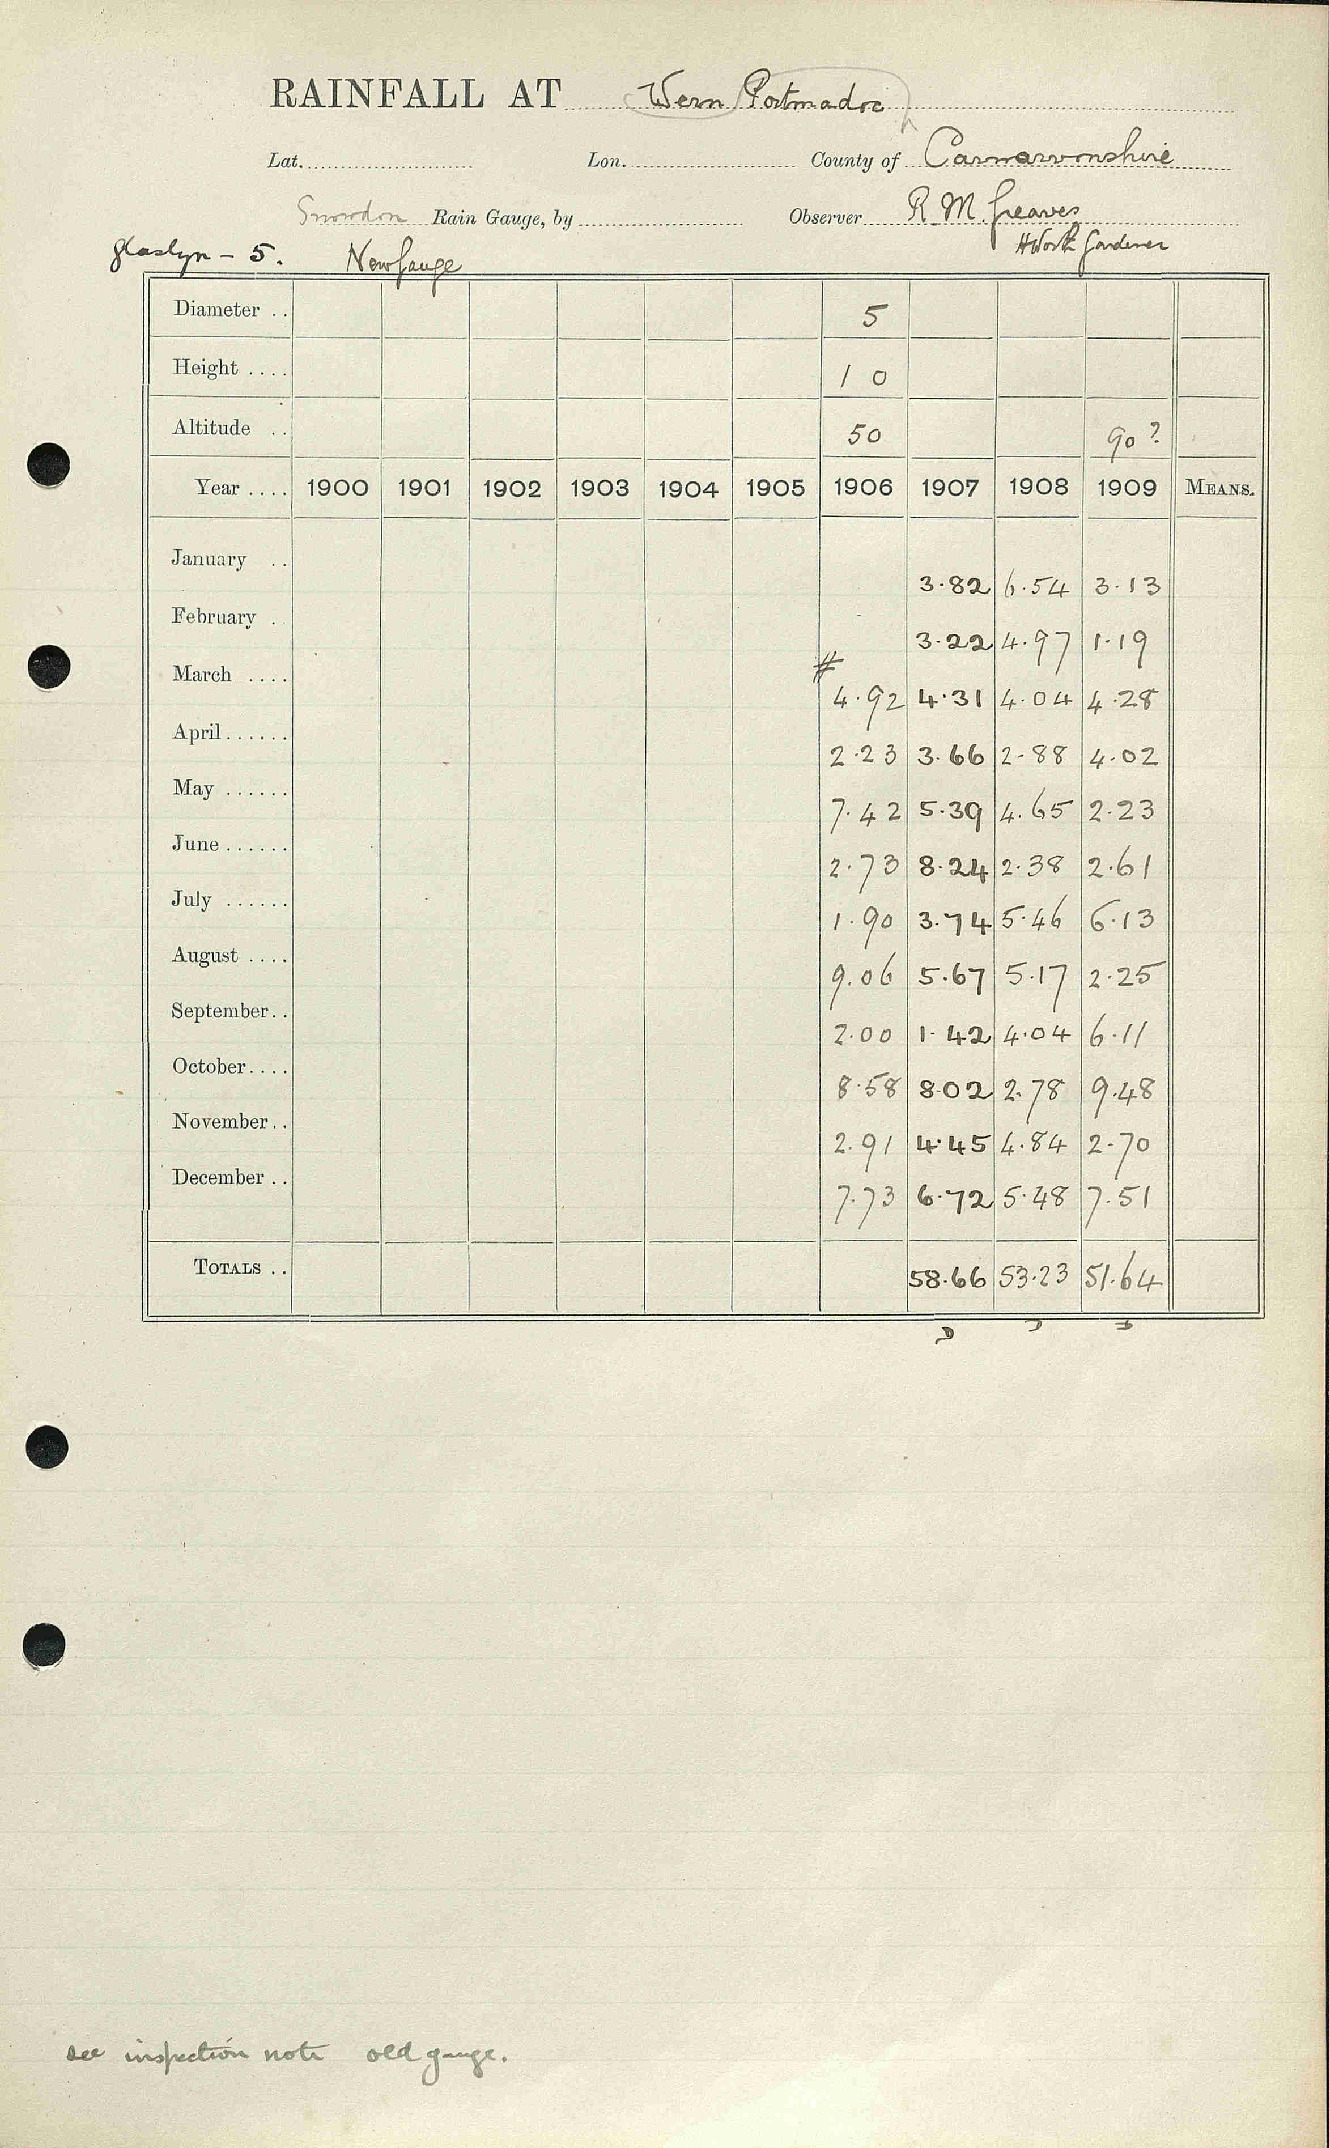 RAINFALL AT Wern Portmadoc
Lat. Lon. County of Carnarvonshire
Snowdon Rain Gauge, by Observer R M Greaves
Glaslyn - 5. New Gauge H Worth Gardener
Diameter .. 5
Height .... 1 0
Altitude .. 50 90?
Year .... 1900 1901 1902 1903 1904 1905 1906 1907 1908 1909 MEANS.
January .. 3.82 6.54 3.13
February . 3.22 4.97 1.19
March .... # 4.92 4.31 4.04 4.28
April...... 2.23 3.66 2.88 4.02
May ...... 7.42 5.39 4.65 2.23
June...... 2.73 8.24 2.38 2.61
July ...... 1.90 3.74 5.46 6.13
August .... 9.06 5.67 5.17 2.25
September.. 2.00 1.42 4.04 6.11
October.... 8.58 8.02 2.78 9.48
November.. 2.91 4.45 4.84 2.70
December .. 7.73 6.72 5.48 7.51
TOTALS .. 58.66 53.23 51.64
see inspection note old gauge.